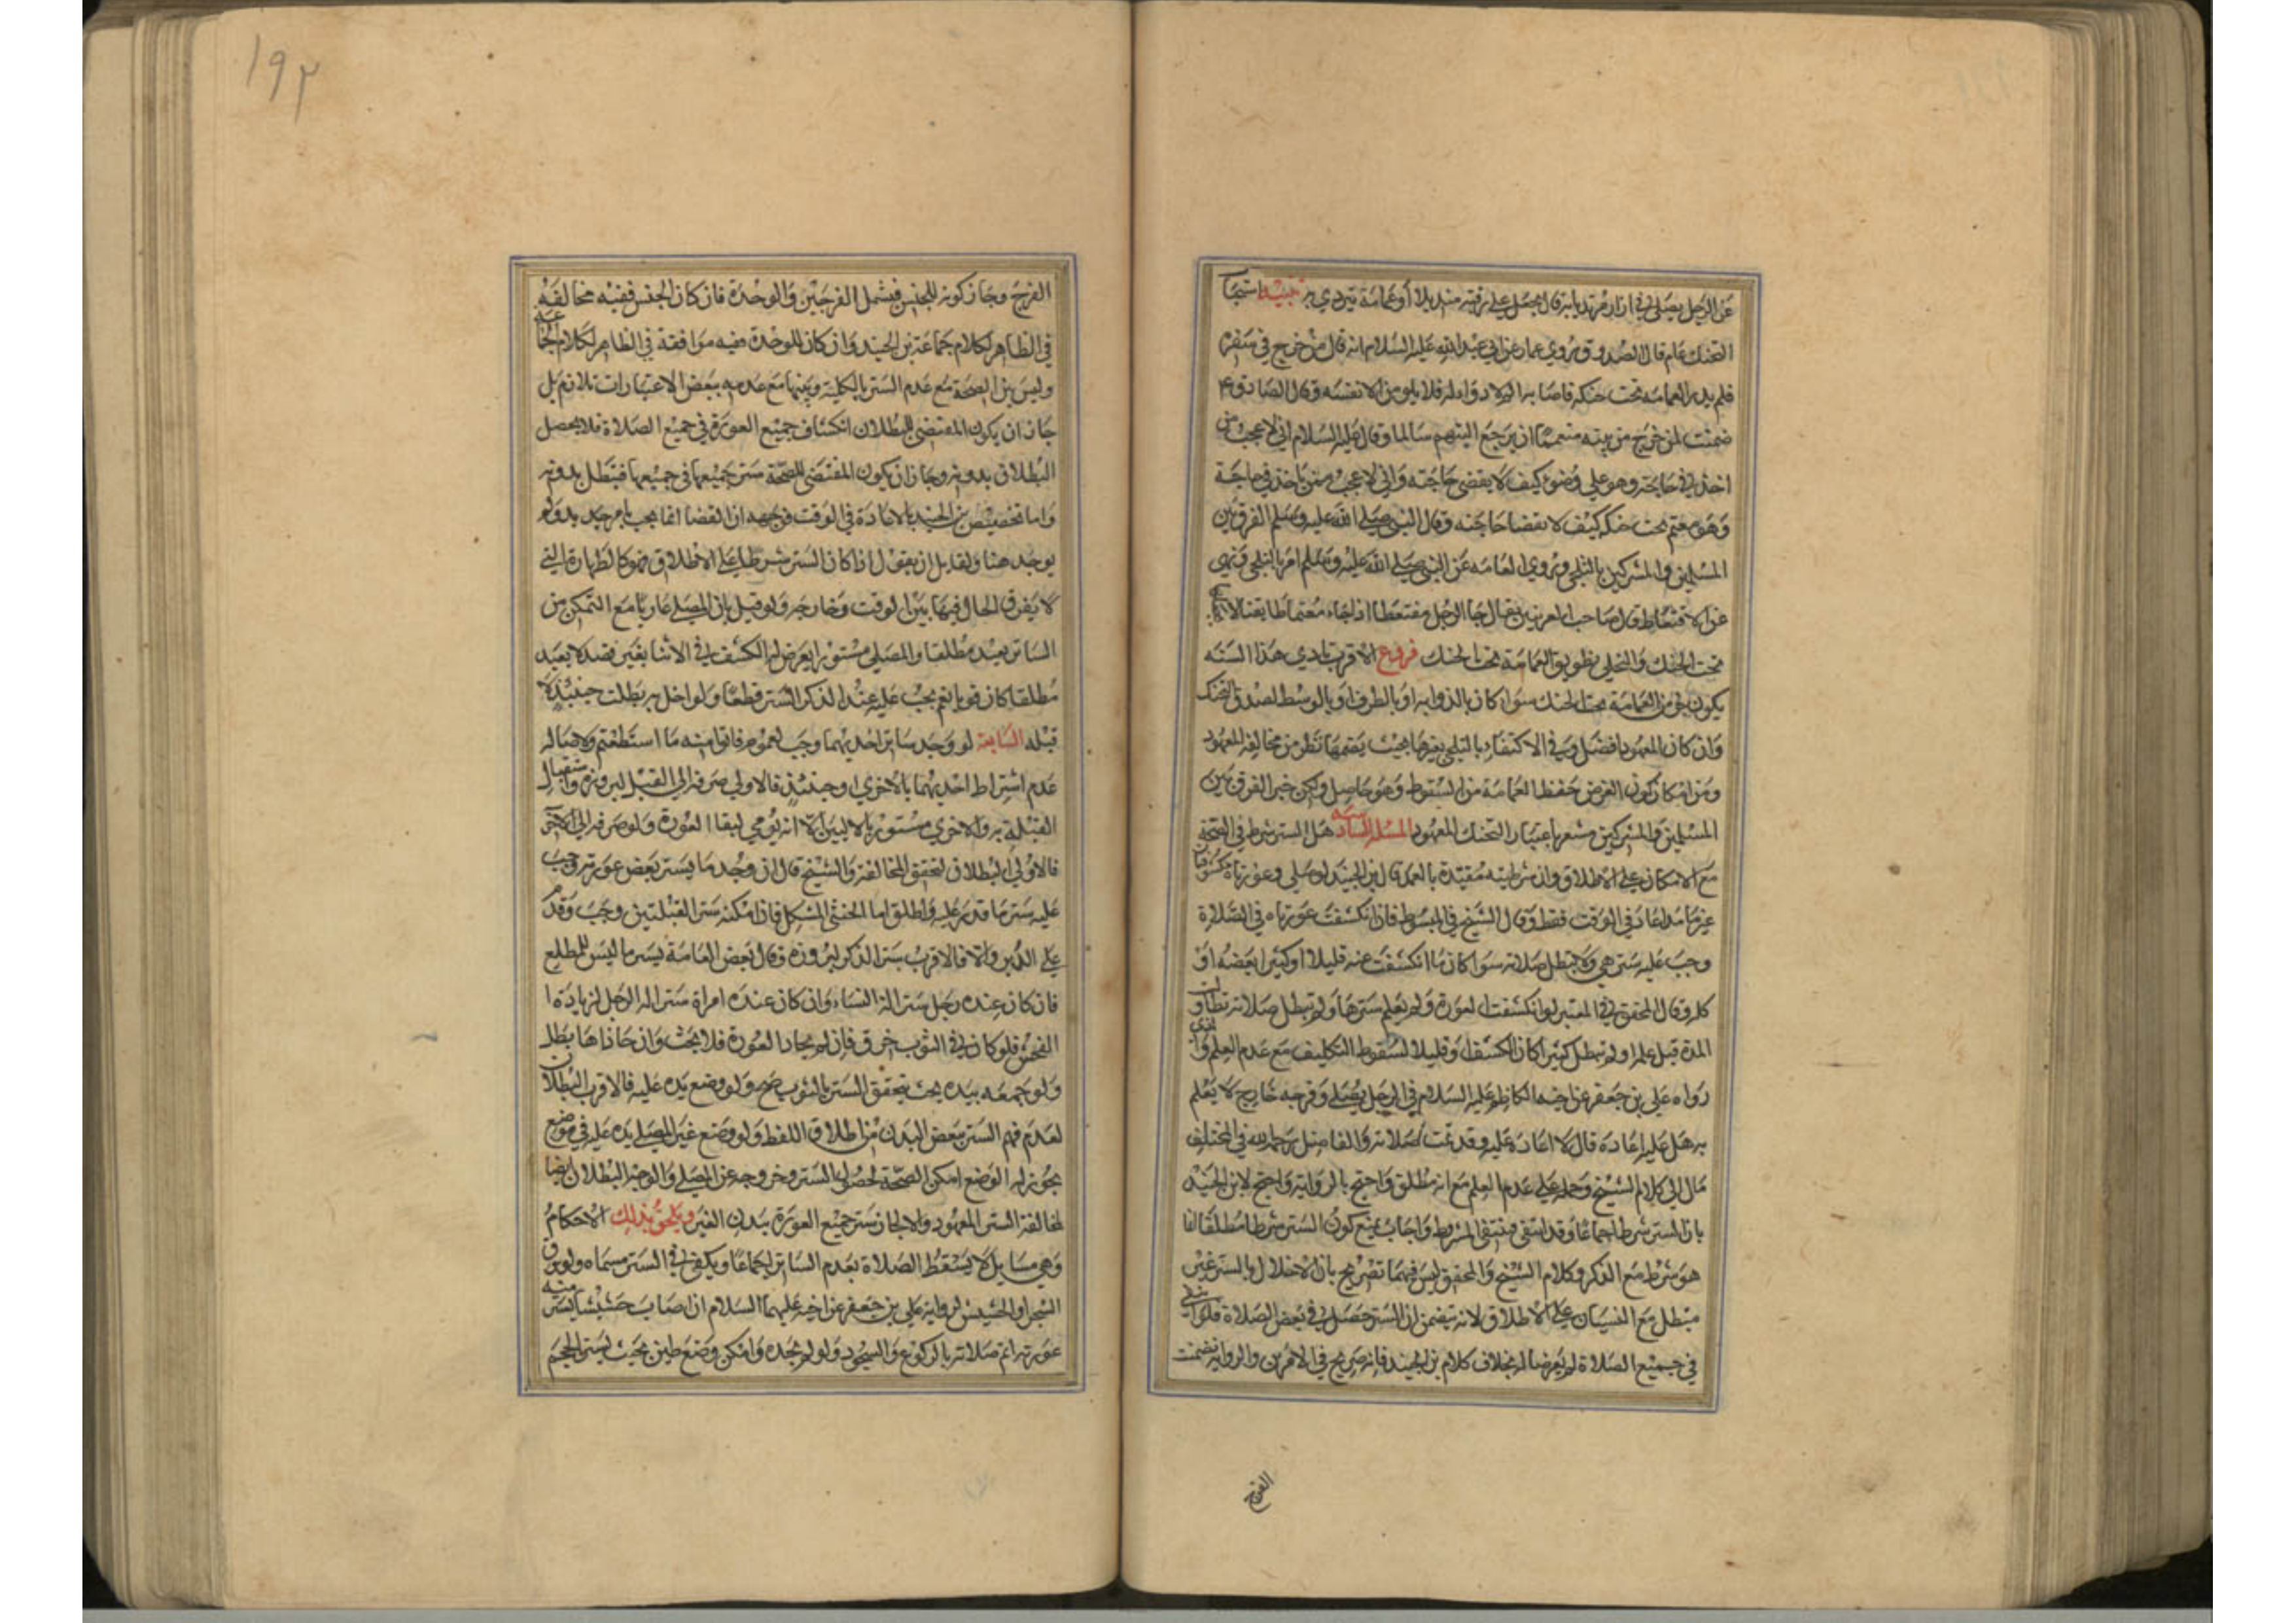 عن الرجل يصلي في ازار مرتديا به قال يجعل على رقبته منديلا أو عمامة يتردى به تنبيه استحباب
التحنك عام قال الصدوق وروى عمار عن ابي عبد الله عليه السلام انه قال من خرج في سفره
فلم يدر العمامة تحت حنكه فاصابه الم لا دواء له فلا يلومن الا نفسه وقال الصادق ع
ضمنت لمن خرج من بيته متعمما ان يرجع اليهم سالما وقال عليه السلام اني لاعجب ممن
اخذ في حاجته وهو على وضوء كيف لا يقضى حاجته واني لاعجب ممن ياخذ في حاجة
وهو معتم تحت حنكه كيف لا يقضا حاجته وقال النبي صلى الله عليه وسلم الفرق بين
المسلمين والمشركين بالتلحي وروى العامه عن النبي صلى الله عليه وسلم امر بالتلحي ونهى
عن الاقتعاط قال صاحب الغريبين يقال جا الرجل مقتعطا اذا جاء معتما طابقيا لا
تحت الحنك والتلحي تطويق العمامة تحت الحنك فروع الاقرب تادي هذا السنه
يكون جزء من العمامة تحت الحنك سوا كان بالذوابه او بالطرف او بالوسط لصدق التحنك
وان كان المعهود افضل وفي الاكتفاء بالتلحي بغيرها بحيث يضمها نظر من مخالفه المعهود
ومن امكان كون الغرض حفظ العمامة من السقوط وهو حاصل ولكن خبر الفرق بين
المسلمين والمشركين مشعر باعتبار التحنك المعهود المسله السادسه هل الستر شرط في الصحة
مع الامكان على الاطلاق وان شرطيته مقيدة بالعمد قال ابن الجنيد لو صلى وعورتاه مكشوفتان
غير عامد اعاد في الوقت فقط وقال الشيخ في المبسوط فان انكشفت عورتاه في الصلاة
وجب عليه ستر هي ولا تبطل صلاته سوا كان ما انكشفت عنه قليلا او كثيرا بعضه او
كله وقال المحقق في المعتبر لو انكشفت العورة ولم يعلم سترها ولم تبطل صلاته تطاولت
المدة قبل علمه او لم تطل كثيرا كان الكشف او قليلا لسقوط التكليف مع عدم العلم و
رواه علي بن جعفر عن اخيه الكاظم عليه السلام في الرجل يصلي وفرجه خارج لا يعلم
به هل عليه اعادة قال لا اعادة عليه وقد تمت صلاته والفاضل رحمه الله في المختلف
مال الى كلام الشيخ وحمله على عدم العلم مع انه مطلق واحتج بالرواية واحتج لابن الجنيد
بان الستر شرط اجماعا وقد انتفى فينتفى المشروط واجاب بمنع كون الستر شرطا مطلقا انما
هو شرط مع الذكر وكلام الشيخ والمحقق ليس فيهما تصريح بان الاخلال بالستر غير
مبطل مع النسيان على الاطلاق لانه يتضمن ان الستر حصل في بعض الصلاة فلو انتفى
في جميع الصلاة لم يعرضا له بخلاف كلام بن الجنيد فانه صريح في الامرين والرواية تضمنت
الفرج
١٩٢
الفرج وجاز كونه للجنس فيشمل الفرجين والوحدة فان كان الجنس ففيه مخالفه
في الظاهر لكلام جماعة بن الجنيد وان كان للوحدة ففيه موافقة في الظاهر لكلام الجماعة
وليس بين الصحة مع عدم الستر بالكلية وبينها مع عدمه ببعض الاعتبارات تلازم بل
جاز ان يكون المقتضى للبطلان انكشاف جميع العورة في جميع الصلاة فلا يحصل
البطلان بدونه وجاز ان يكون المقتضى للصحة ستر جميعها في جميعها فتبطل بدونه
واما تخصيص بن الجنيد بالاعادة في الوقت فوجهه ان القضا انما يجب بامر جديد ولم
يوجد هنا ولقايل ان يقول اذا كان الستر شرطا على الاطلاق فهو كالطهارة التي
لا يفرق الحال فيها بين الوقت وخارجه ولو قيل بان المصلي عاريا مع التمكن من
الساتر يعيد مطلقا والمصلي مستورا يعرض له الكشف في الاثنا بغير قصد لا يعيد
مطلقا كان قويا نعم يجب عليه عند الذكر الستر قطعا ولو اخل به بطلت حينئذ لا
قبله السابعة لو وجد ساتر احديهما وجب لعموم فاتوا منه ما استطعتم ولاصالة
عدم اشتراط احديهما بالاخرى وحينئذ فالاولى صرفه الى القبل لبروزه واستقبال
القبلة به والاخرى مستور بالاليين الا انه يومي لبقا العورة ولو صرفه الى الاخر
فالاولى البطلان لتحقق المخالفة والشيخ قال ان وجد ما يستر بعض عورته وجب
عليه ستر ما قدر عليه واطلق اما الخنثى المشكل فان امكنه ستر القبلتين وجب وقدم
على الدبر والا فالاقرب ستر الذكر لبروزه وقال بعض العامة يستر ما ليس للمطلع
فان كان عنده رجل ستر الة النساء وان كان عنده امراة ستر الة الرجل لزيادة ا
الفحش فلو كان في الثوب خرق فان لم يحاذ العورة فلا بحث وان حاذاها بطل
ولو جمعه بيده بحيث يتحقق الستر بالثوب صح ولو وضع يده عليه فالاقرب البطلان
لعدم فهم الستر ببعض البدن من اطلاق اللفظ ولو وضع غير المصلي يده عليه في موضع
يجوز له الوضع امكن الصحة لحصول الستر وخروجه عن المصلي والوجه البطلان ايضا
لمخالفة الستر المعهود والا لجاز ستر جميع العورة ببدن الغير ويلحق بذلك الاحكام
وهي مسايل لا يسقط الصلاة بعدم الساتر اجماعا ويكفي في الستر مسماه ولو بورق
الشجر او الحشيش لرواية علي بن جعفر عن اخيه عليهما السلام ان اصاب حشيشا يستر منه
عورته اتم صلاته بالركوع والسجود ولو لم يجده وامكن وضع طين بحيث يستر الحجم